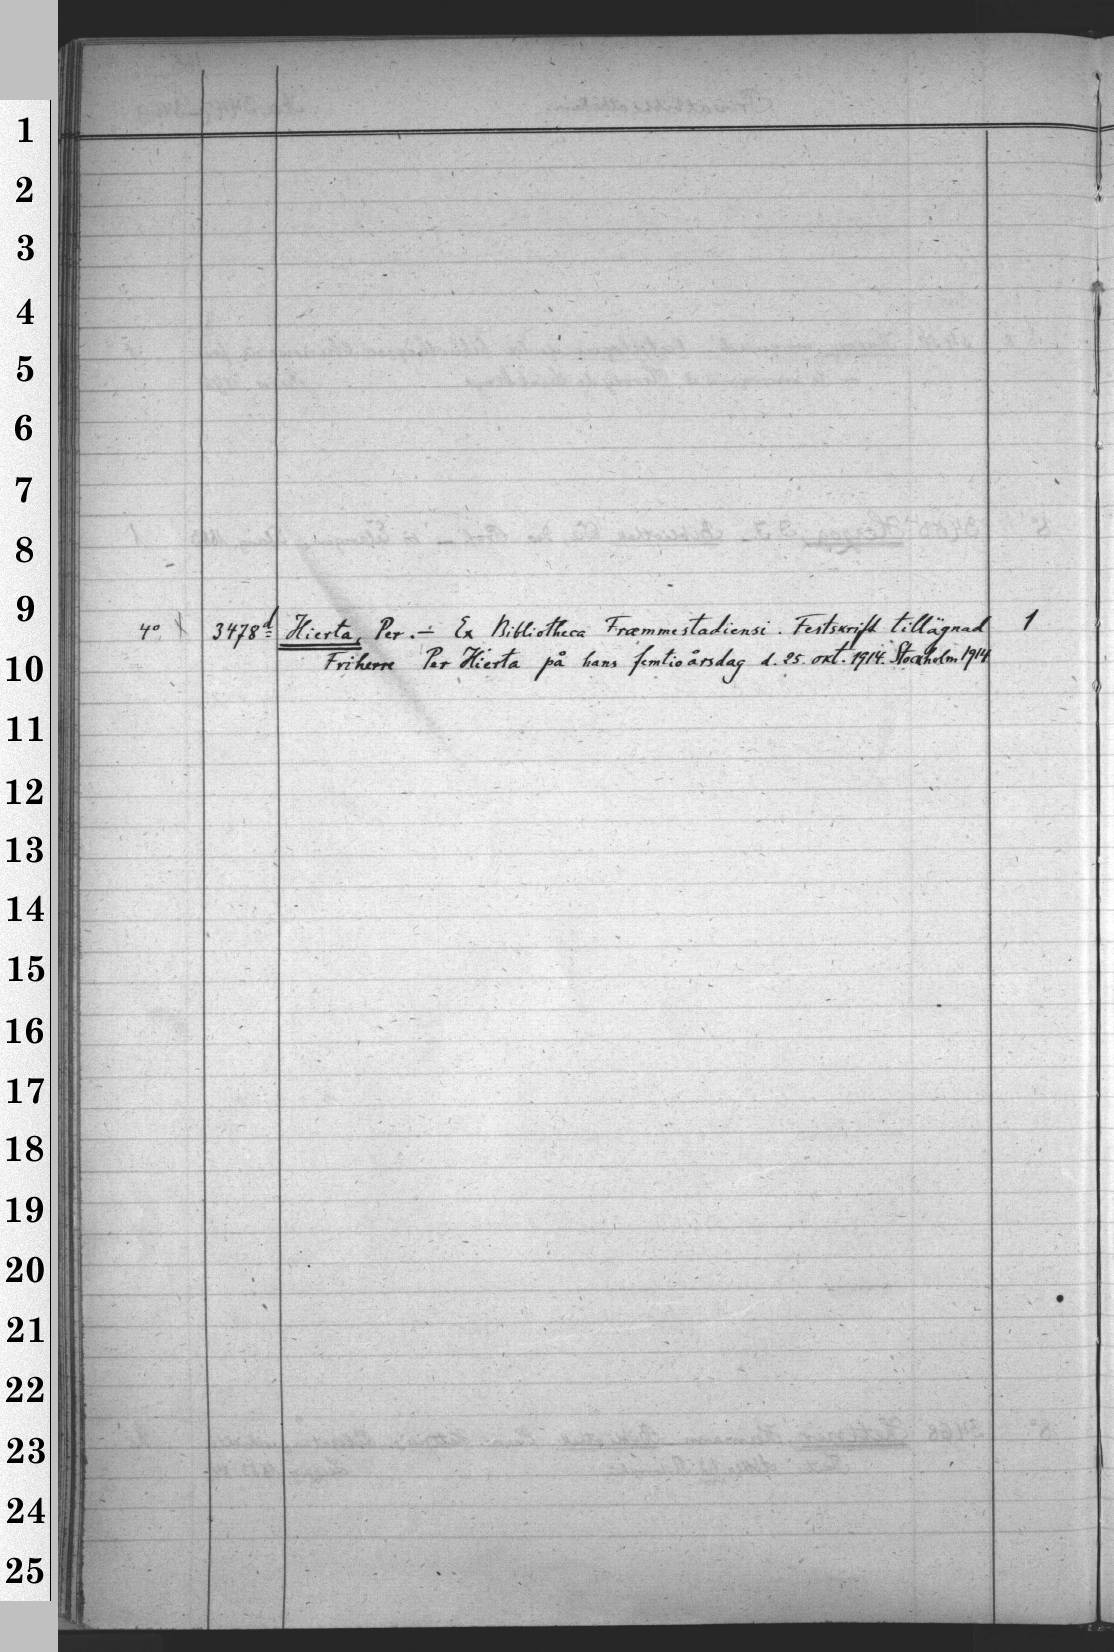 1
2
3
4
5
6
7
8
9
4° 3478d Hierta, Per. – Ex Bibliotheca Fræmmestadiensi. Festskrift tillägnad 1
10
Friherre Per Hierta på hans femtioårsdag d. 25. okt. 1914. Stockholm 1914
11
12
13
14
15
16
17
18
19
20
21
22
23
24
25